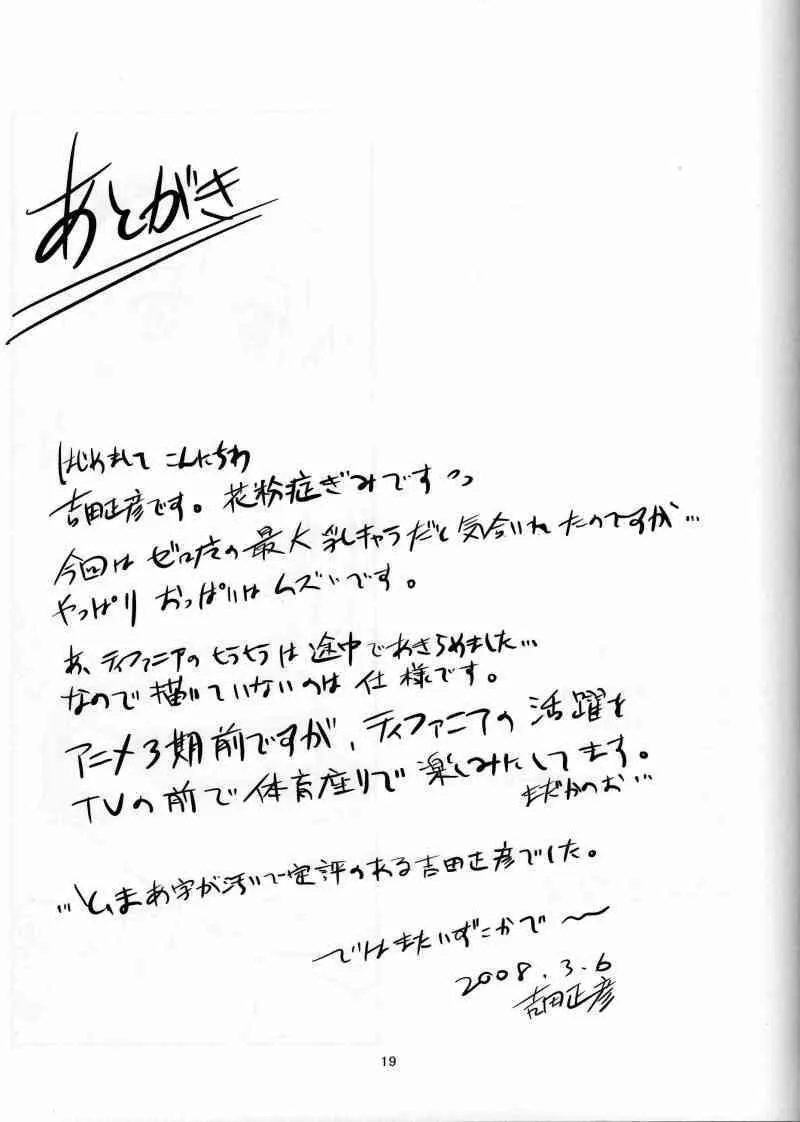 あとがき
はじめまして こんにちわ
吉田正彦です。花粉症ぎみです
今回は ゼロ魔の最大乳キャラだと気合いれたのですが…
やっぱり おっぱいは ムズいです。
あ、ティファニアの ヒラヒラは 途中であきらめました…
なので描いていないのは 仕様です。
アニメ3期前ですが、ティファニアの 活躍を
TVの前で体育座りで 楽しみにしてます。
まだかのお…
…と、まあ字が汚いで定評のある吉田正彦でした。
ではまたいずこかで〜
2008.3.6
吉田正彦
19